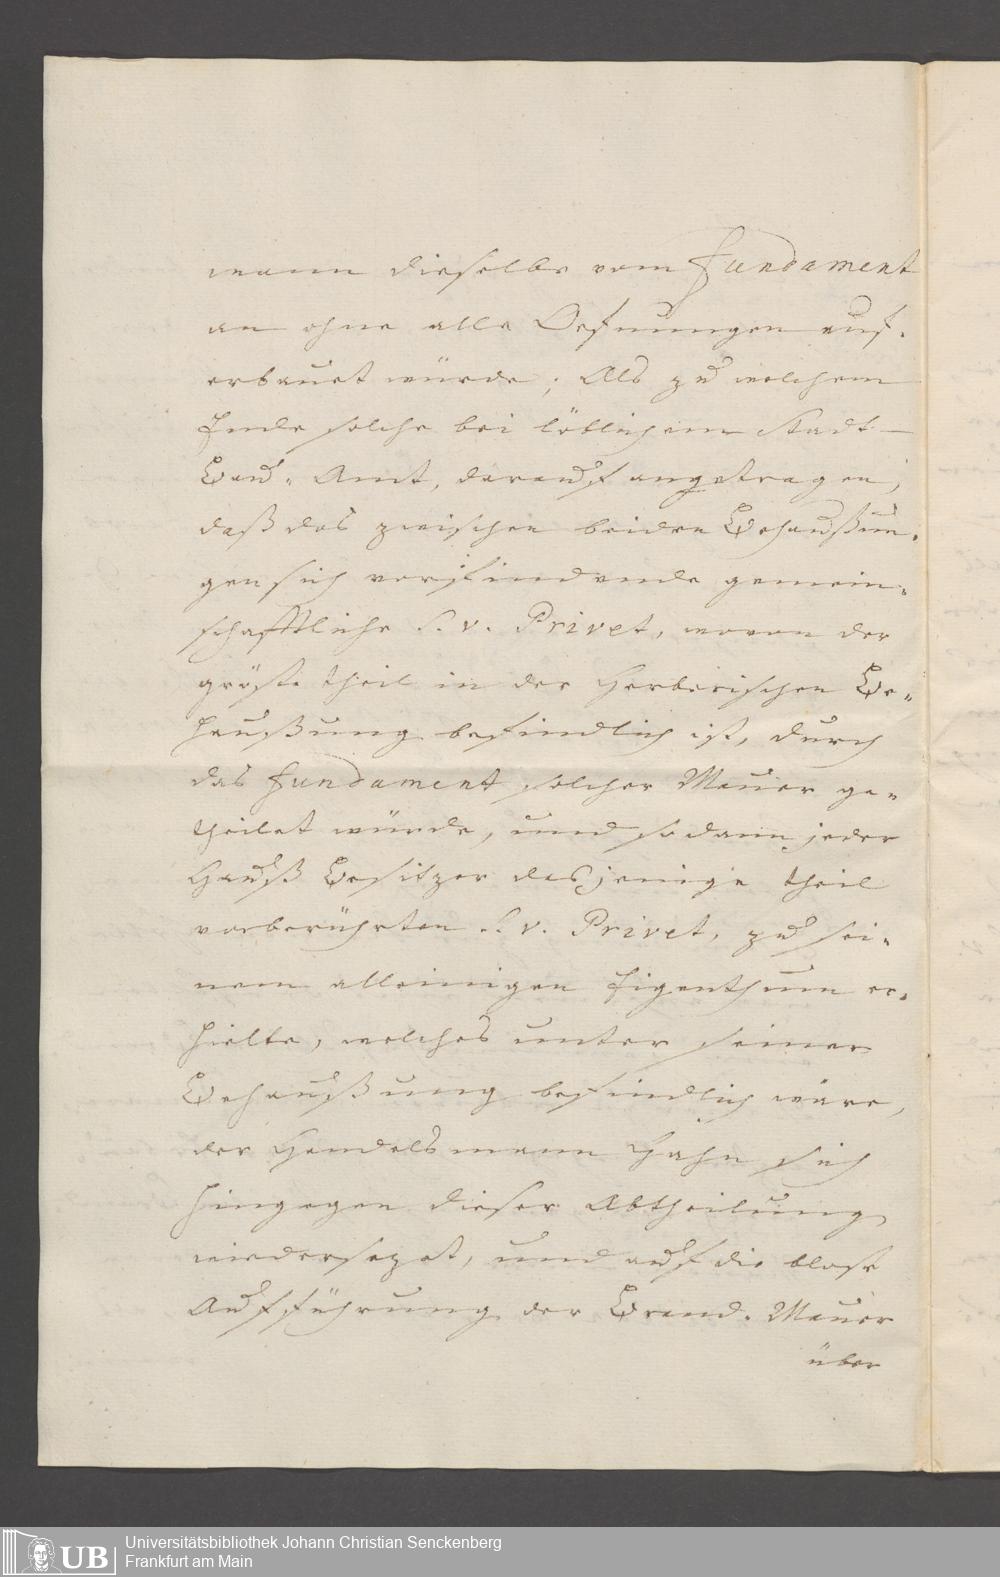 wann dieselbe vom Fundament
an ohne alle Oefnungen auf-
erbauet würde; Als zu welchem
Ende solche bei löblichem Stadt-
Bau-Amt, darauf angetragen,
daß das zwischen beiden Behaußun-
gen sich vorfindende gemein-
schafftliche S. v. Privet, wovon der
gröste theil in der Herberischen Be-
haußung befindlich ist, durch
das Fundament solcher Mauer ge-
theilet würde, und so dann jeder
Hauß Besitzer dasjenige theil
vorberührten S. v. Privet, zu sei-
nem alleinigen Eigenthum er-
hielte, welches unter seiner
Behaußung befindlich wäre,
der Handelsmann Hahn sich
hingegen dieser Abtheilung
wiedersezet, und auf die blose
Aufführung der Brand-Mauer
über
UB Universitätsbibliothek Johann Christian Senckenberg
Frankfurt am Main